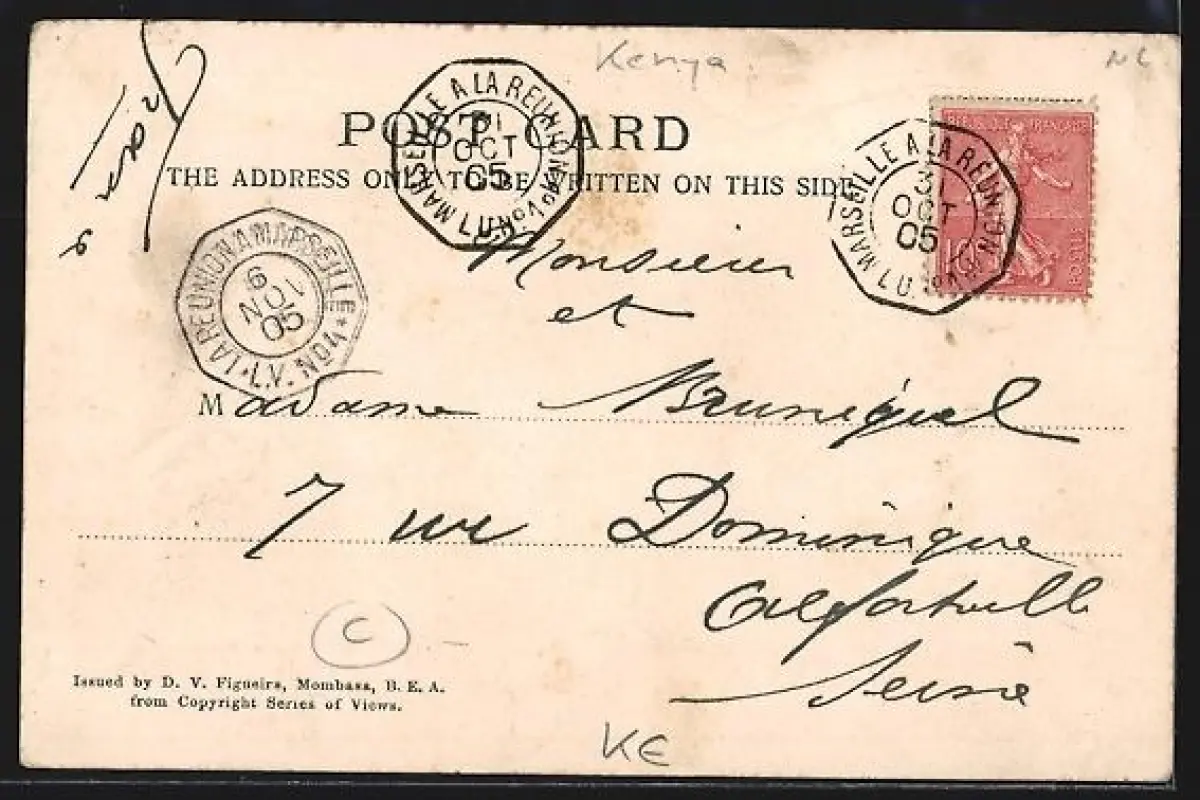 Kenya
NL
POST CARD
THE ADDRESS ONLY TO BE WRITTEN ON THIS SIDE
MARSEILLE A LA REUNION
31
OCT
05
L.U. No 4
REPUBLIQUE FRANÇAISE
MARSEILLE A LA REUNION
31
OCT
05
L.U. No 4
10
POSTES
LA REUNION A MARSEILLE
6
NOV
05
L.V. No 4
Monsieur
et
Madame Bruniquel
7 rue Dominique
Alfortville
Seine
C
Issued by D. V. Figueira, Mombasa, B. E. A.
from Copyright Series of Views.
KE